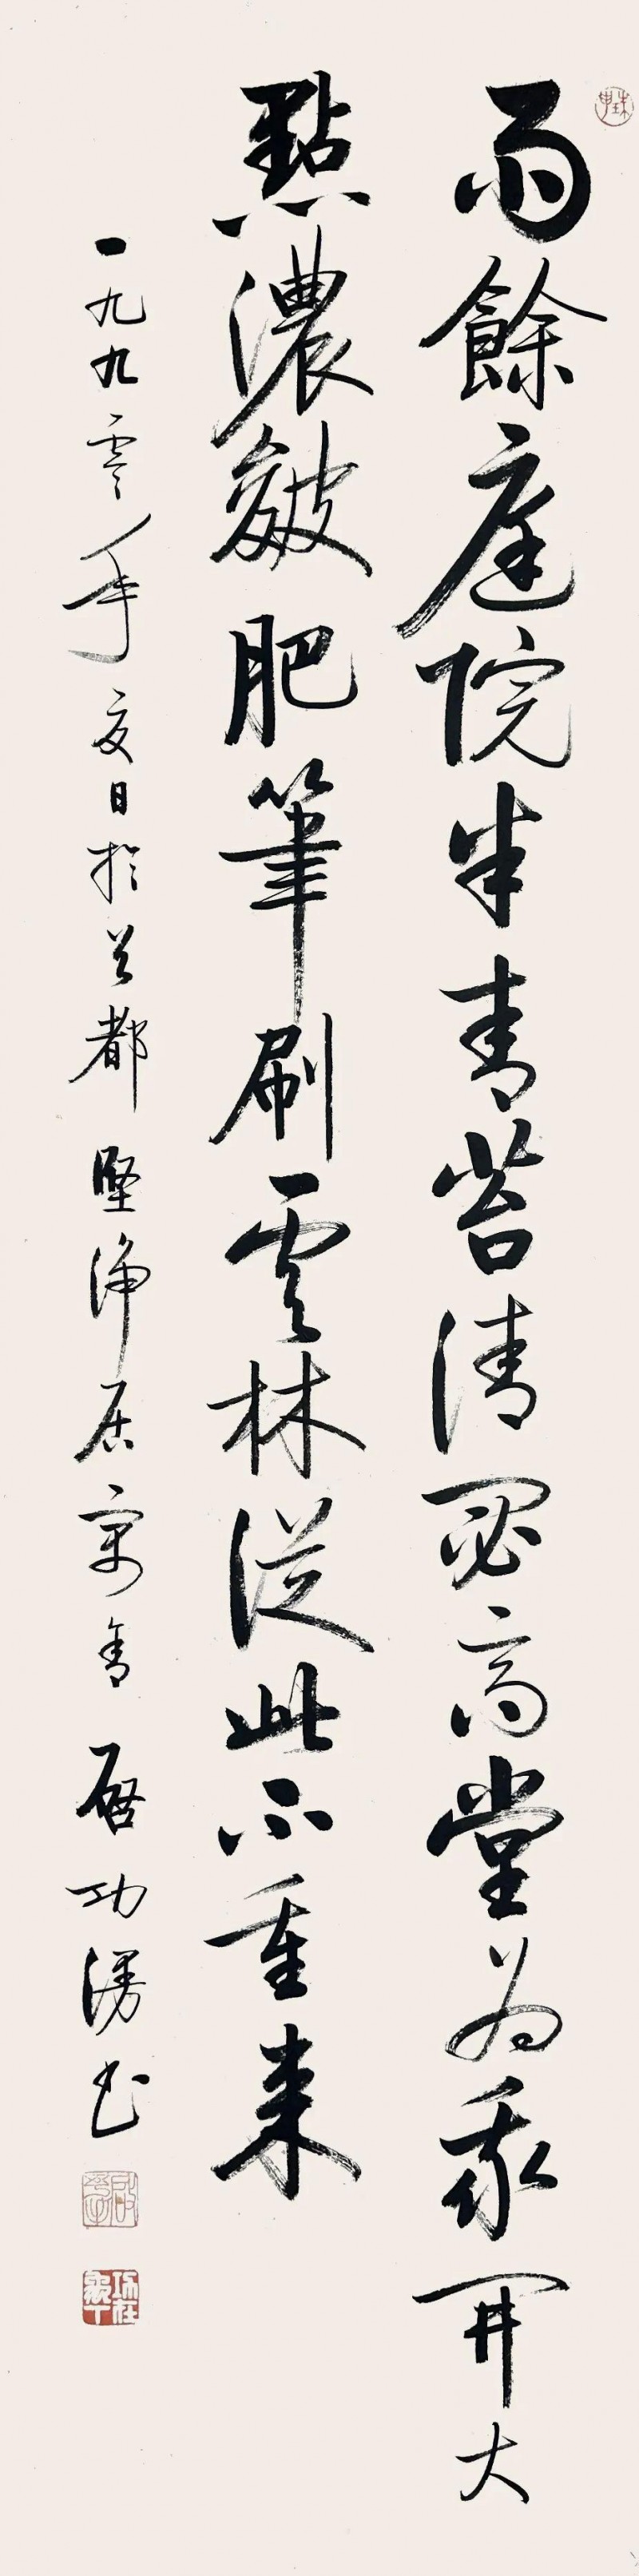 雨餘庭院半青苔清閟高堂為我開大
點濃皴肥筆刷雲林從此不重來
一九九零年夏日於首都堅淨居寓舍 啟功漫書